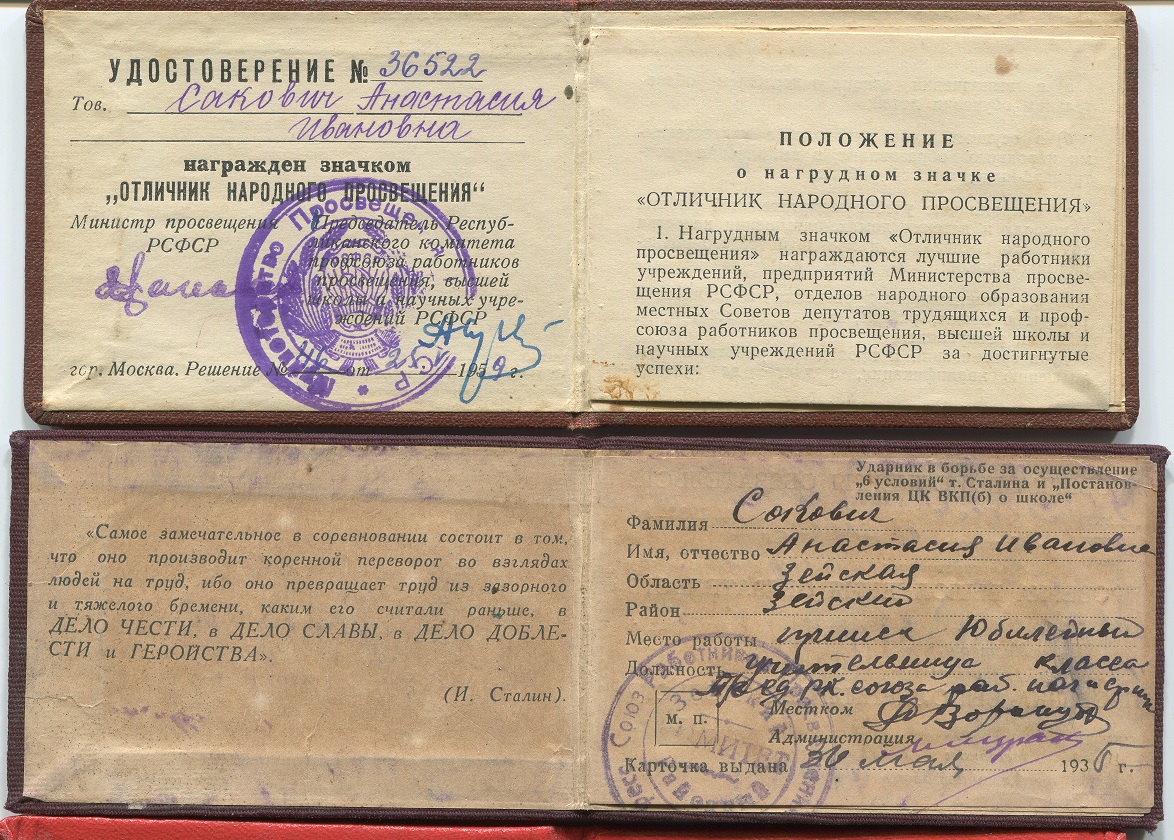 УДОСТОВЕРЕНИЕ № 36522
Тов. Сакович Анастасия
Ивановна
награжден значком
„ОТЛИЧНИК НАРОДНОГО ПРОСВЕЩЕНИЯ“
Министр просвещения
РСФСР
Председатель Респуб-
ликанского комитета
профсоюза работников
просвещения, высшей
школы и научных учре-
ждений РСФСР
гор. Москва. Решение № от 1959 г.
ПОЛОЖЕНИЕ
о нагрудном значке
«ОТЛИЧНИК НАРОДНОГО ПРОСВЕЩЕНИЯ»
1. Нагрудным значком «Отличник народного
просвещения» награждаются лучшие работники
учреждений, предприятий Министерства просве-
щения РСФСР, отделов народного образования
местных Советов депутатов трудящихся и проф-
союза работников просвещения, высшей школы и
научных учреждений РСФСР за достигнутые
успехи:
«Самое замечательное в соревновании состоит в том,
что оно производит коренной переворот во взглядах
людей на труд, ибо оно превращает труд из зазорного
и тяжелого бремени, каким его считали раньше, в
ДЕЛО ЧЕСТИ, в ДЕЛО СЛАВЫ, в ДЕЛО ДОБЛЕ-
СТИ и ГЕРОЙСТВА».
(И. Сталин).
Ударник в борьбе за осуществление
„6 условий“ т. Сталина и „Постанов-
ления ЦК ВКП(б) о школе“
Фамилия Сокович
Имя, отчество Анастасия Ивановна
Область Зейская
Район Зейский
Место работы прииск Юбилейный
Должность учительница класса
Пред. рк. союза раб.
М. П.
Местком
Администрация
Карточка выдана мая 193 г.